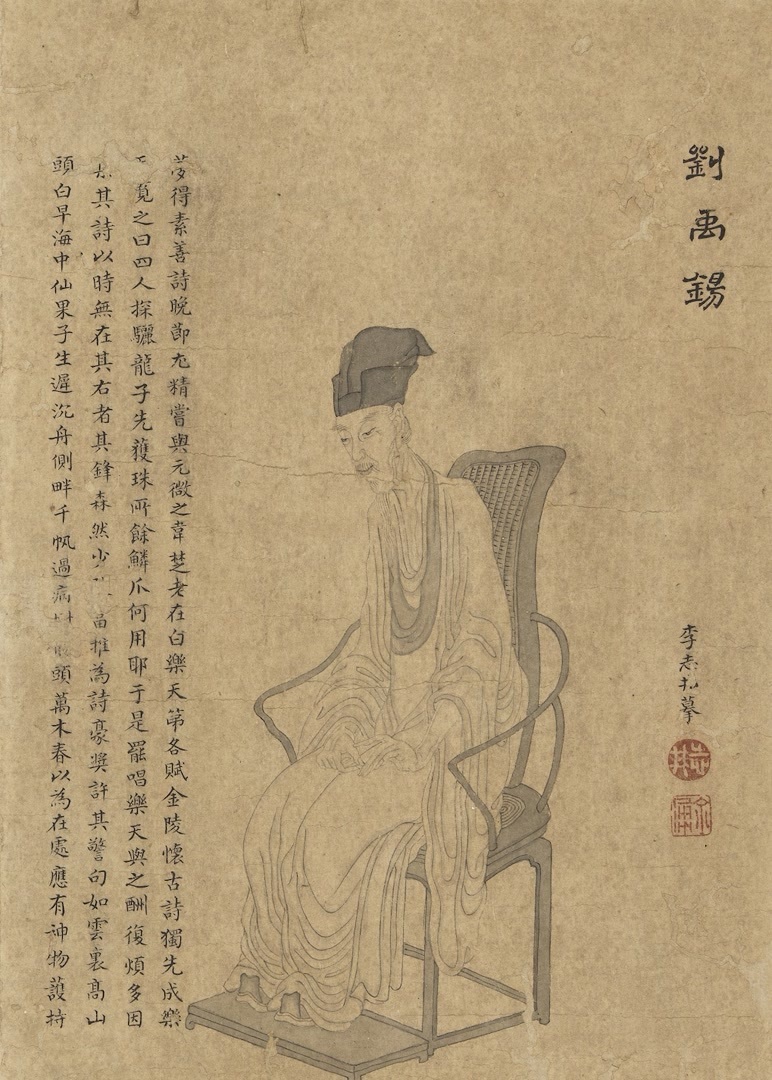 劉禹錫
李志摹
夢得素善詩晚節尤精嘗與元微之韋楚老在白樂天第各賦金陵懷古詩獨先成樂
覽之曰四人探驪龍子先獲珠所餘鱗爪何用耶于是罷唱樂天與之酬復煩多因
其詩以時無在其右者其鋒森然少當推為詩豪奬許其警句如雲裏高山
頭白早海中仙果子生遲沉舟側畔千帆過病頭萬木春以為在處應有神物護持